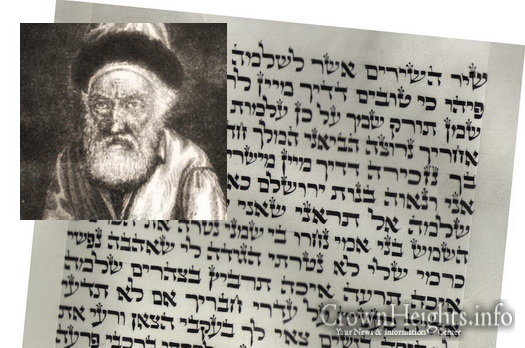 שיר השירים אשר לשלמה
פיהו כי טובים דדיך מיין
שמן תורק שמך על כן עלמות
אחריך נרוצה הביאני המלך
בך נזכירה דדיך מיין
אני ונאוה בנות ירושלם
שלמה אל תראני שאני
השמש בני אמי נחרו בי שמני נטרה את
כרמי שלי לא נטרתי הגידה לי שאהבה נפשי
איכה תרעה איכה תרביץ בצהרים שלמה
עדרי חבריך אם לא תדעי
צאי לך בעקבי הצאן ורעי את
פרעה
CrownHeights.info
Your News & Information Center